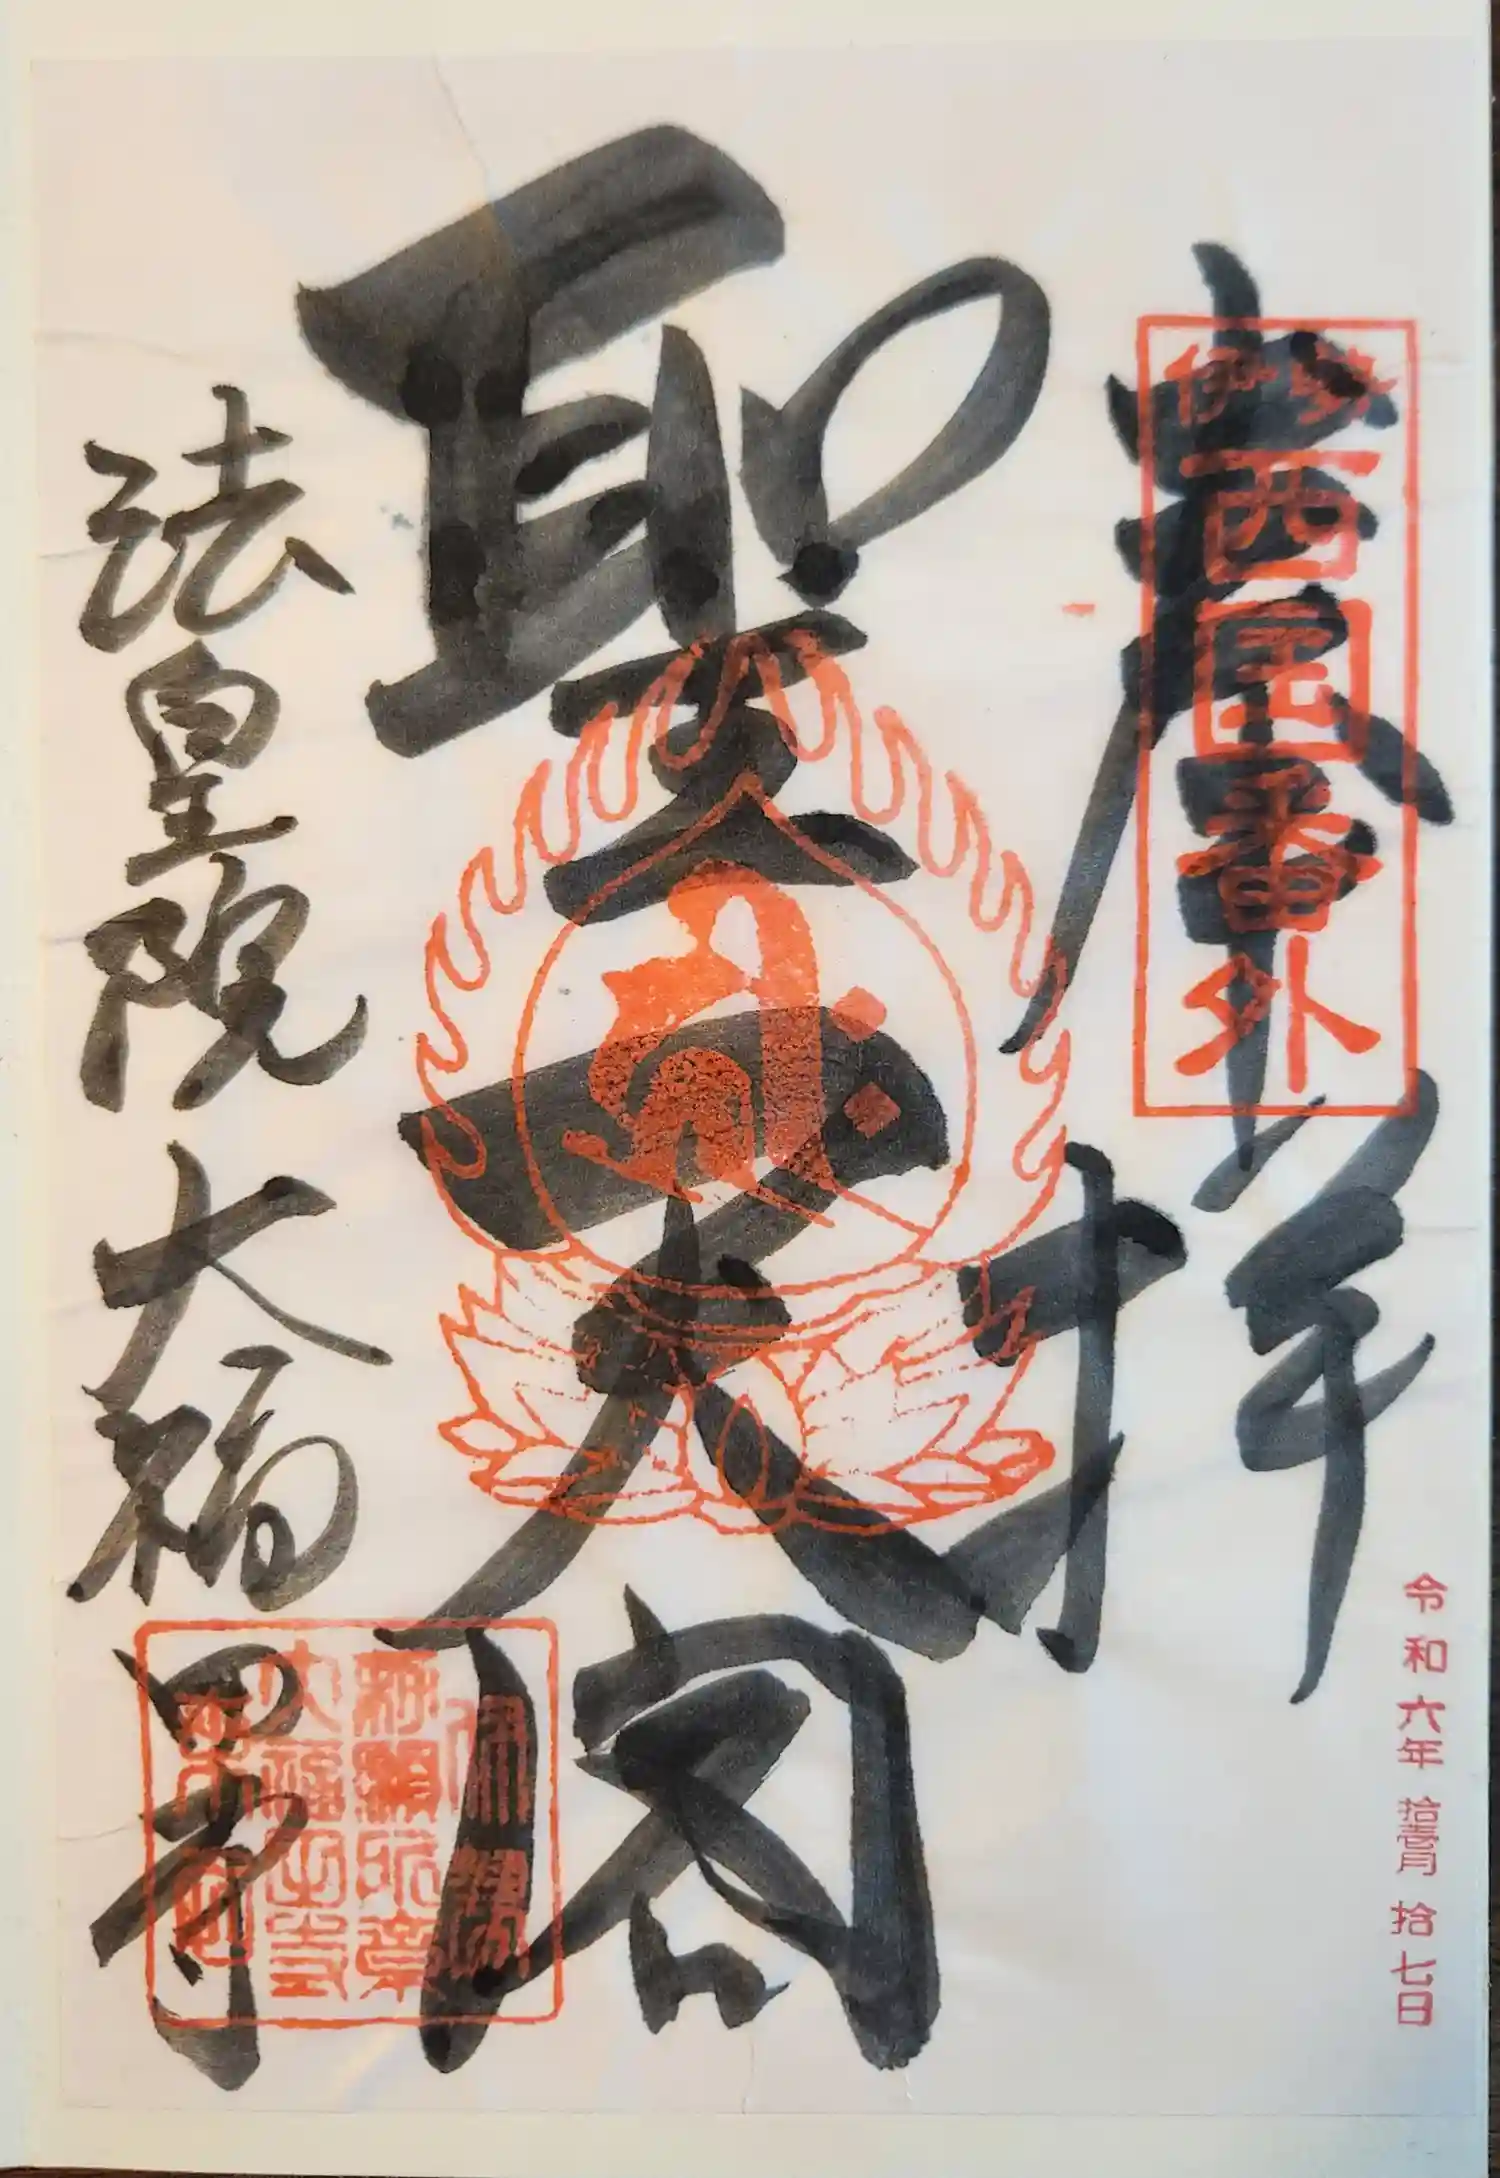 奉拝
伊勢
西国番外
令和六年 拾壱月 拾七日
聖天閣
法皇院 大福田寺